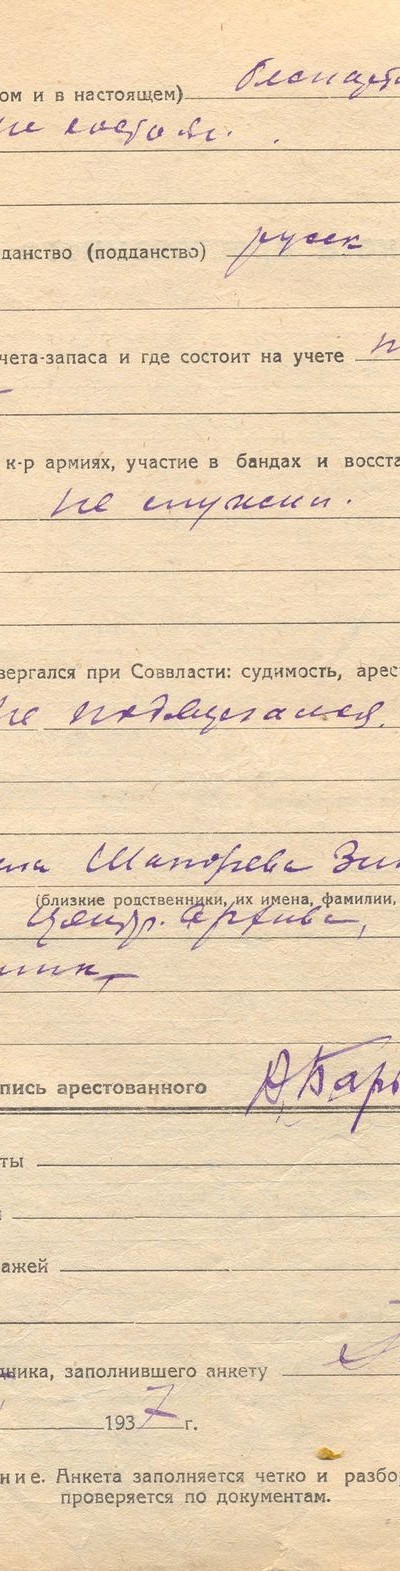 ом и в настоящем)
не состоял.
данство (подданство) русск
чета-запаса и где состоит на учете
к-р армиях, участие в бандах и восста
не служил.
вергался при Соввласти: судимость, арес
не подвергался.
Шапорева Зи
(близкие родственники, их имена, фамилии,
Центр. Архива,
пись арестованного
ты
ажей
ника, заполнившего анкету
1937 г.
ние. Анкета заполняется четко и разбо
проверяется по документам.